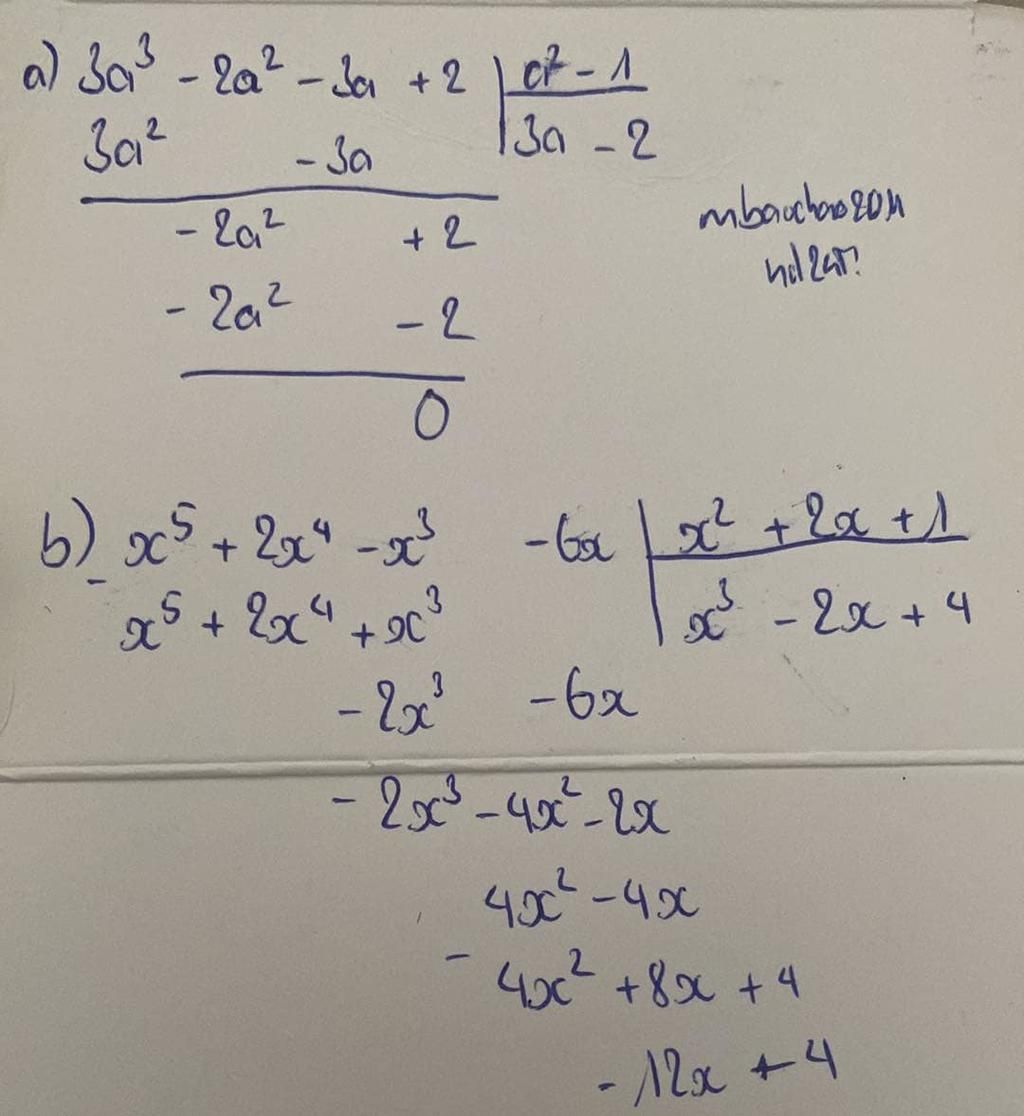 a) 3a³ - 2a² - 3a + 2 | a² - 1
3a² - 3a | 3a - 2
- 2a² + 2
- 2a² - 2
0
b) x⁵ + 2x⁴ - x³ - 6x | x² + 2x + 1
- x⁵ + 2x⁴ + x³ | x³ - 2x + 4
- 2x³ - 6x
- 2x³ - 4x² - 2x
4x² - 4x
- 4x² + 8x + 4
- 12x + 4